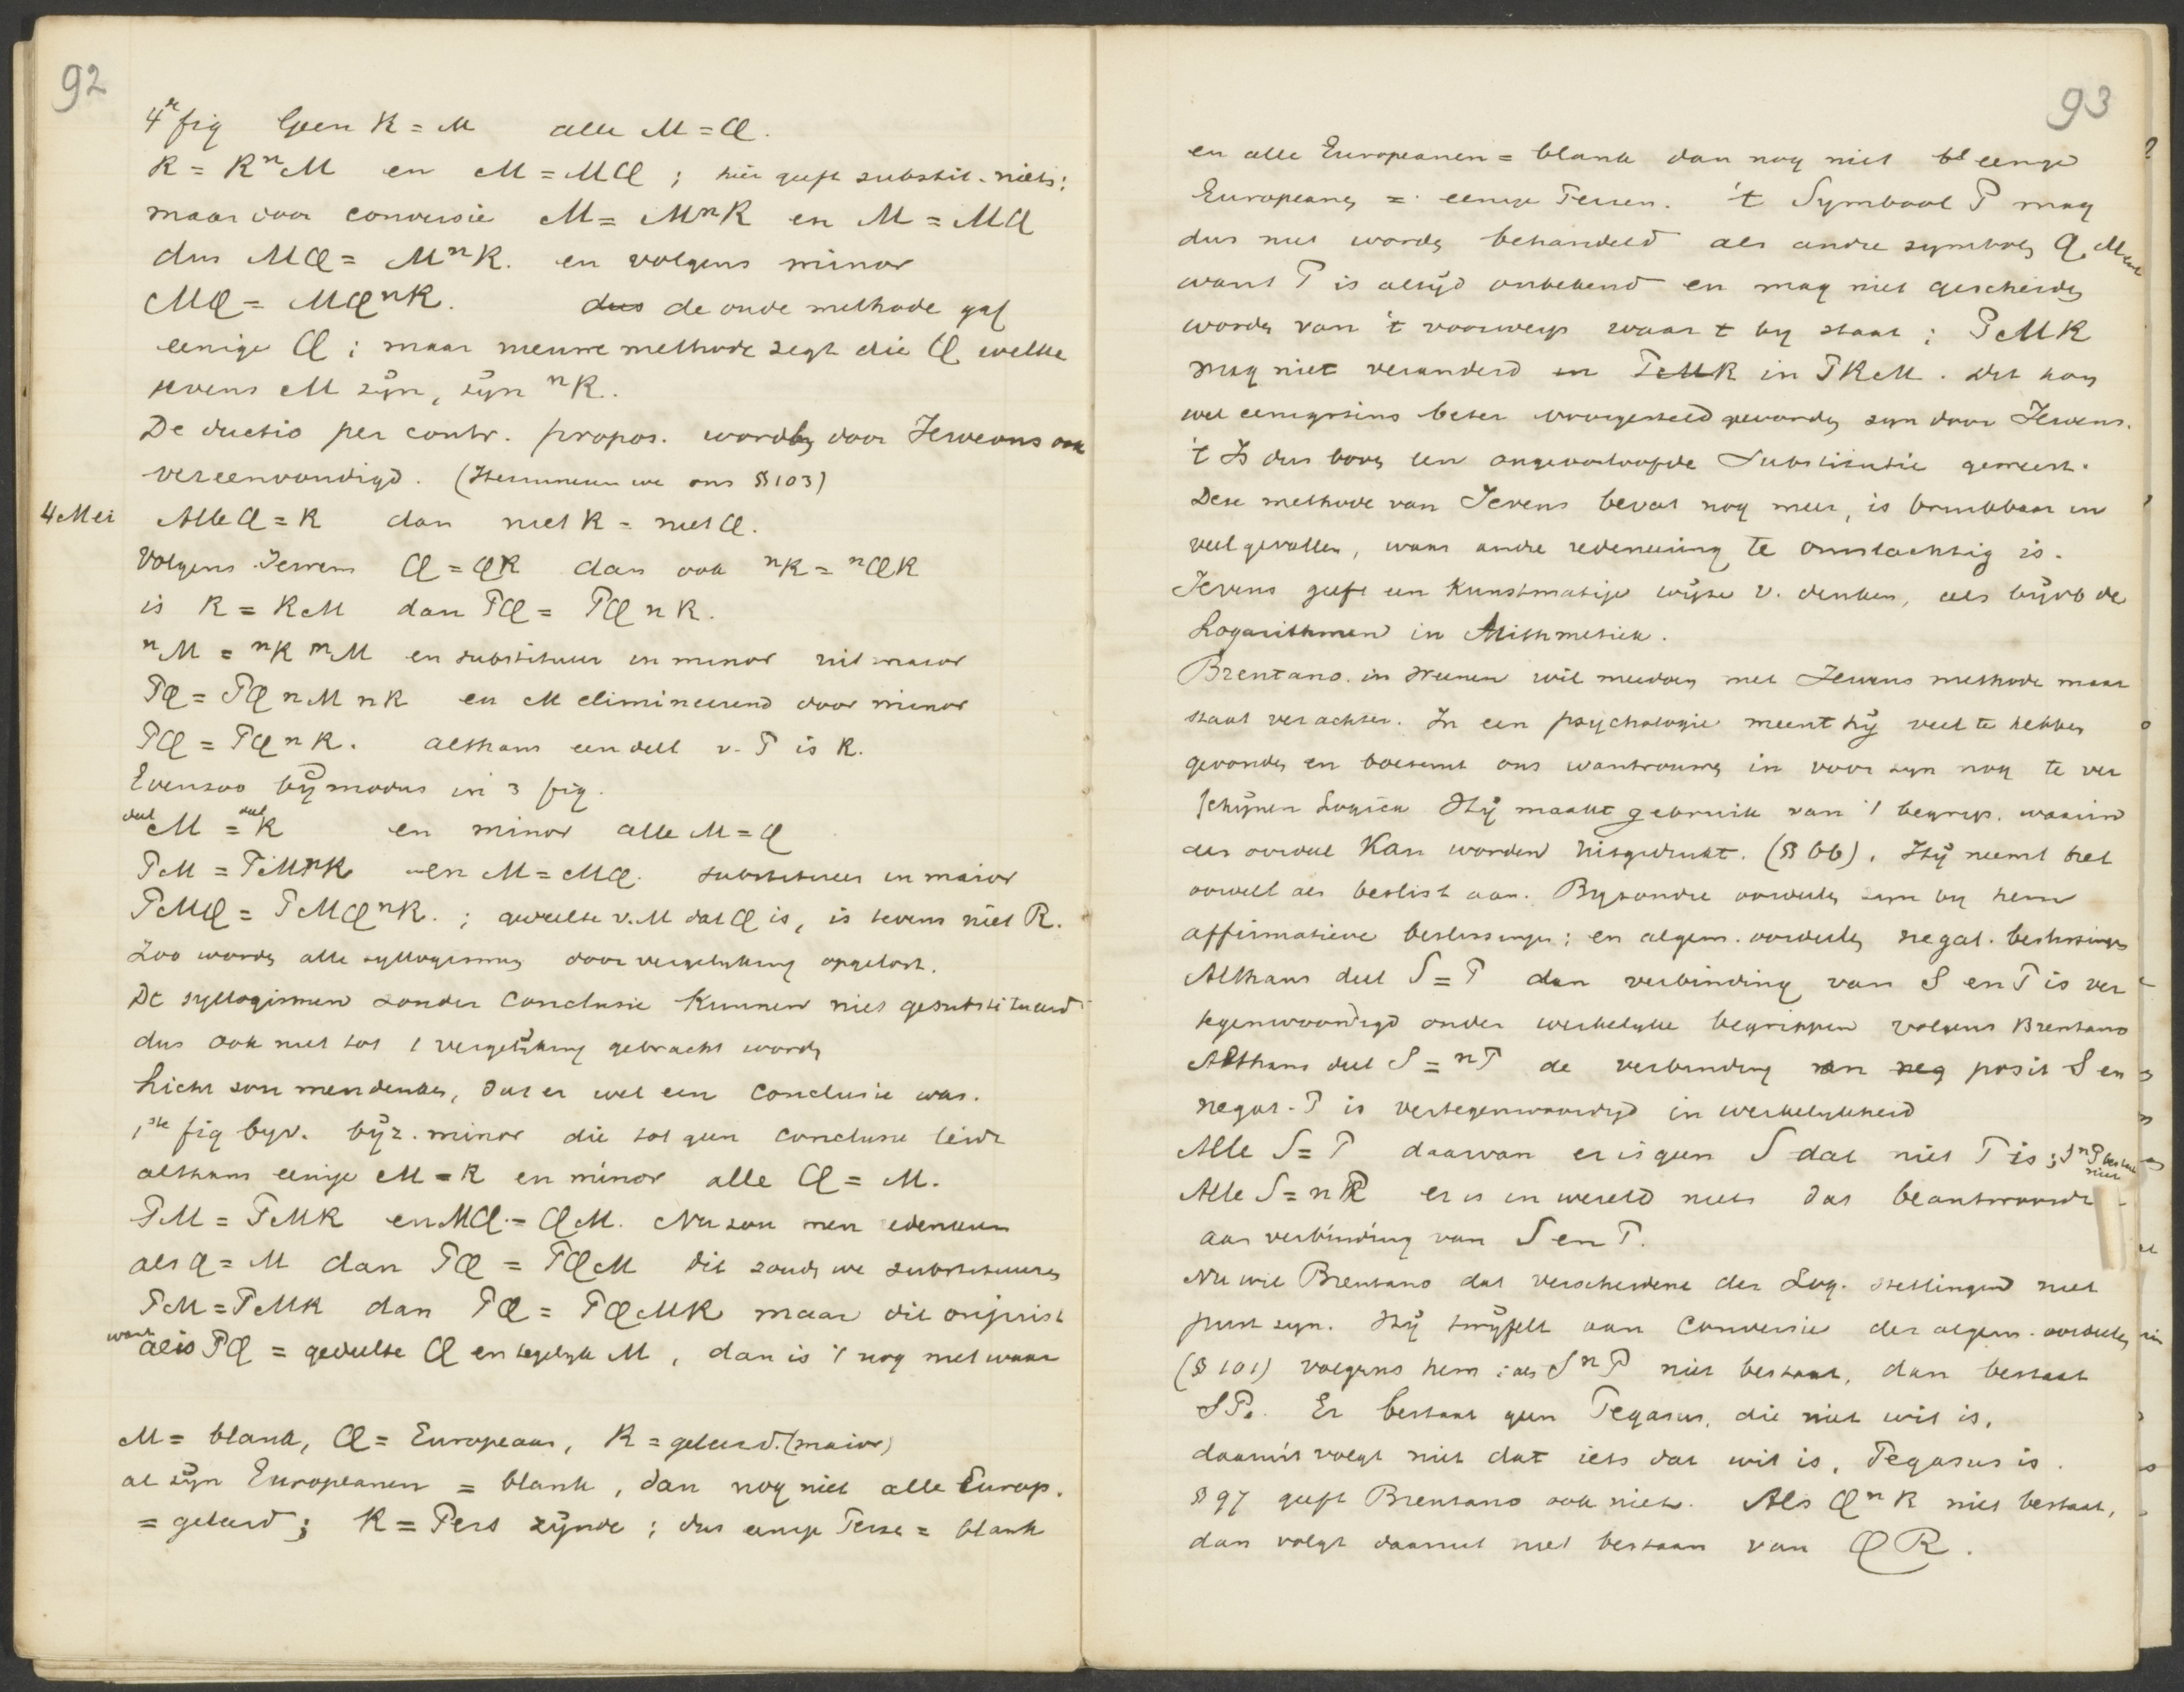 92
4e fig Geen R = M alle M = Q.
R = RnM en M = MQ ; hier geeft substit. niets:
maar door conversie M = MnR en M = MQ
dus MQ = MnR. en volgens minor
MQ = MQnR. dus de oude methode gaf
eenige Q ; maar nieuwe methode zegt die Q welke
tevens M zijn, zijn nR.
De ductio per contr. propos. worden door Jewons ook
vereenvoudigd. (Herinneren we ons § 103)
4 Mei Alle Q = R dan niet R = niet Q.
Volgens Jevens Q = QR dan ook nR = nQR
is R = RM dan PQ = PQ n R.
nM = nR nM en substitueer in minor uit maior
PQ = PQ n M n R en M elimineerend door minor
PQ = PQ n R. althans een deel v. P is R.
Evenzoo bij modus in 3 fig.
deel M = deel R en minor alle M = Q
PM = PMnR en M = MQ. substitueer in maior
PMQ = PMQnR. ; gedeelte v. M dat Q is, is tevens niet R.
Zoo worden alle syllogismen door vergelijking opgelost.
De syllogismen zonder Conclusie kunnen niet gesubstitueerd
dus ook niet tot 1 vergelijking gebracht worden
Licht zou men denken, dat er wel een Conclusie was.
1ste fig byv. bijz. minor die tot geen conclusie leidt
althans eenige M = R en minor alle Q = M.
PM = PMR en MQ = QM. Nu zou men redeneeren
als Q = M dan PQ = PQM dit zouden we substitueeren
PM = PMR dan PQ = PQMR maar dit onjuist
want al is PQ = gedeelte Q en tegelijk M, dan is 't nog niet waar
M = blank, Q = Europeaan, R = geleerd. (maior)
al zijn Europeanen = blank, dan nog niet alle Europ.
= geleerd ; R = Pers zijnde ; dus eenige Perzen = blank
93
en alle Europeanen = blank dan nog niet eenige
Europeanen = eenige Perzen. 't Symbool P mag
dus niet worden behandeld als andre symbolen Q, M
want P is altijd onbekend en mag niet gescheiden
worden van 't voorwerp waar t by staat ; PMR
mag niet veranderd in PMR in PRM. Dit kon
wel eenigszins beter voorgesteld geworden zijn door Jevens.
't Is dus boven een ongeoorloofde Substitutie geweest.
Deze methode van Jevens bevat nog meer, is bruikbaar in
veel gevallen, waar andre redeneering te omslachtig is.
Jevens geeft een kunstmatige wijze v. denken, als bijvb de
Logarithmen in Arithmetiek.
Brentano in Weenen wil meedoen met Jevens methode maar
staat ver achter. In een psychologie meent hij veel te hebben
gevonden en boezemt ons wantrouwen in voor zijn nog te ver
schijnen Logica Hij maakt gebruik van 't begrip. waarin
der oordeel kan worden uitgedrukt. (§ 66). Hij neemt het
oordeel als beslist aan. Byzondre oordeelen zijn by hem
affirmatieve beslissingen ; en algem. oordeelen negat. beslissingen
Althans deel S = P dan verbinding van S en P is ver
tegenwoordigd onder werkelijke begrippen volgens Brentano
Althans deel S = nP de verbinding van neg posit S en
negat. P is vertegenwoordigd in werkelijkheid
Alle S = P daarvan er is geen S dat niet P is ; SnP bestaat niet
Alle S = n P er is in wereld niets dat beantwoordt
aan verbinding van S en P.
Nu wil Brentano dat verscheidene der Log. stellingen niet
juist zijn. Hij twijfelt aan Conversie der algem. oordeelen
(§ 101) volgens hem : als SnP niet bestaat, dan bestaat
SP. Er bestaat geen Pegasus, die niet wit is,
daaruit volgt niet dat iets dat wit is, Pegasus is.
§ 97 geeft Brentano ook niet. Als QnR niet bestaat,
dan volgt daaruit niet bestaan van QR.